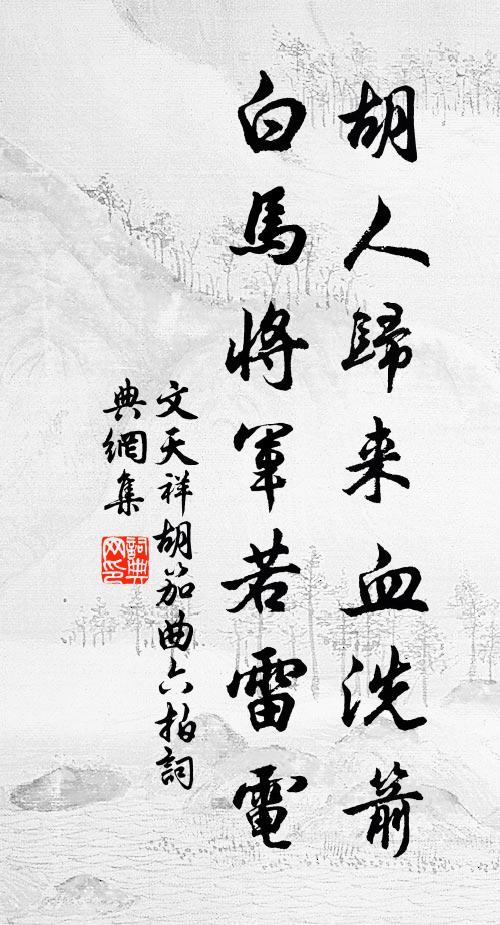 胡人歸来血洗箭
白馬將軍若雷電
文天祥胡笳曲六拍詞
典網集
詞典
网印